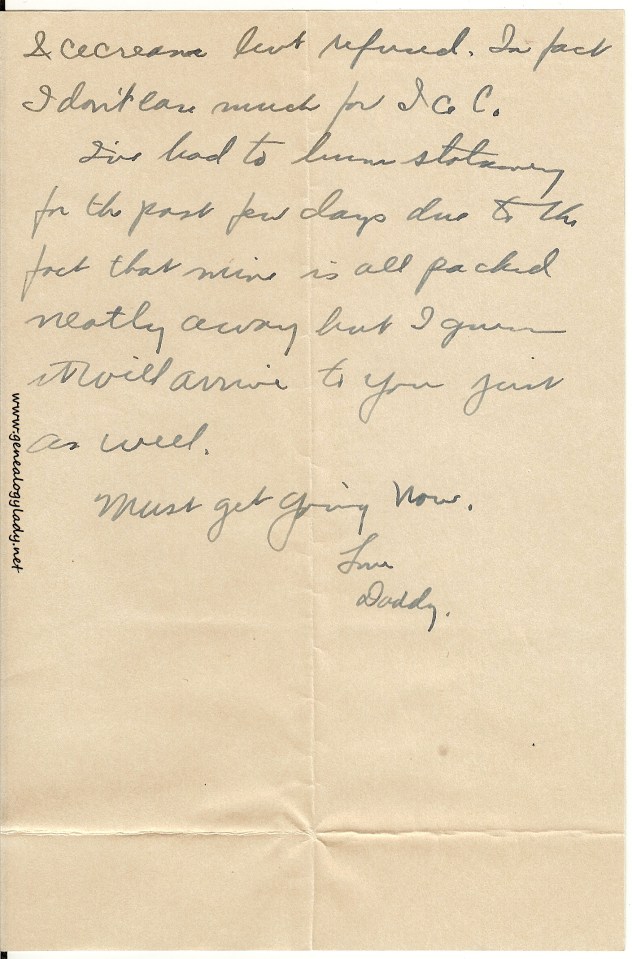 Icecream but refused. In fact
I don't care much for Ice C.
I've had to bum stationery
for the past few days due to the
fact that mine is all packed
neatly away but I guess
it will arrive to you just
as well.
Must get going now.
Love
Daddy.
www.genealogylady.net